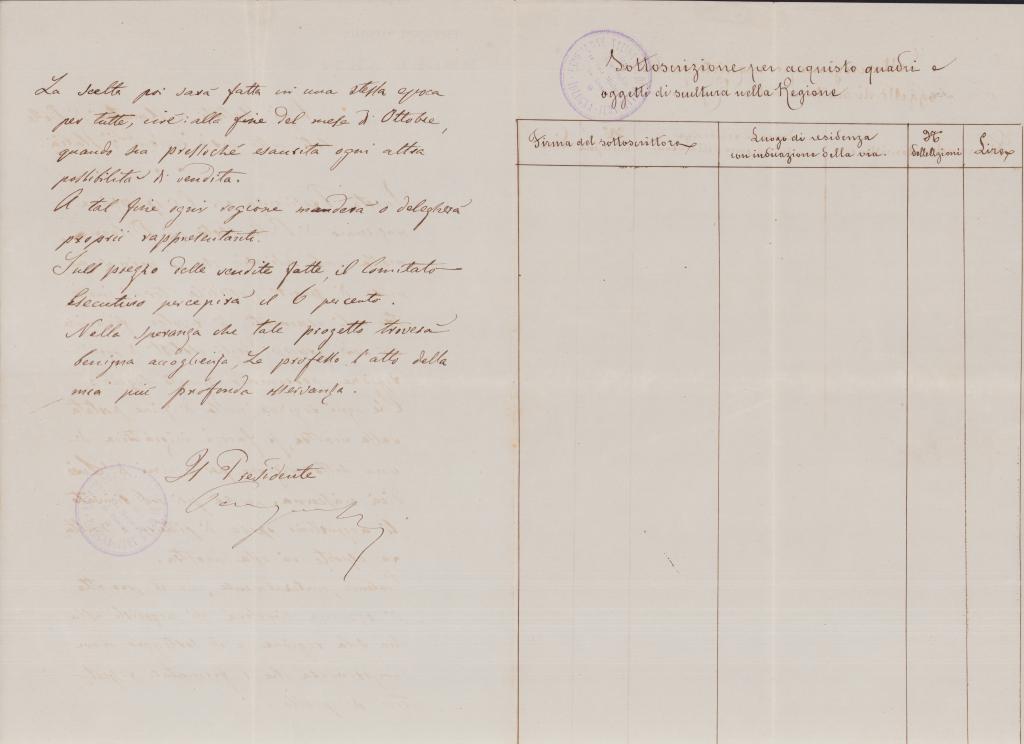 La scelta poi sarà fatta in una stessa epoca
per tutte, cioè: alla fine del mese di Ottobre,
quando sia pressoché esaurita ogni altra
possibilità di vendita.
A tal fine ogni regione manderà o delegherà
proprii rappresentanti.
Sull prezzo delle vendite fatte, il Comitato
Esecutivo percepirà il 6 percento.
Nella speranza che tale progetto troverà
benigna accoglienza, Le professo l'atto della
mia più profonda osservanza.
Il Presidente
Sottoscrizione per acquisto quadri e
oggetti di scultura nella Regione
Firma del sottoscrittore
Luogo di residenza
con indicazione della via.
N
dell'Azioni
Lire